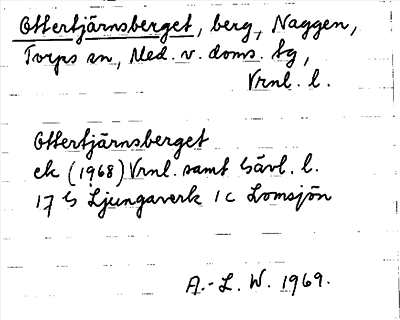 Ottertjärnsberget, berg, Naggen,
Torps sn, Med. v. doms. tg,
Vrnl. l.
Ottertjärnsberget
ek (1968) Vrnl. samt Gävl. l.
17 G Ljungaverk 1c Lomsjön
A.-L. W. 1969.